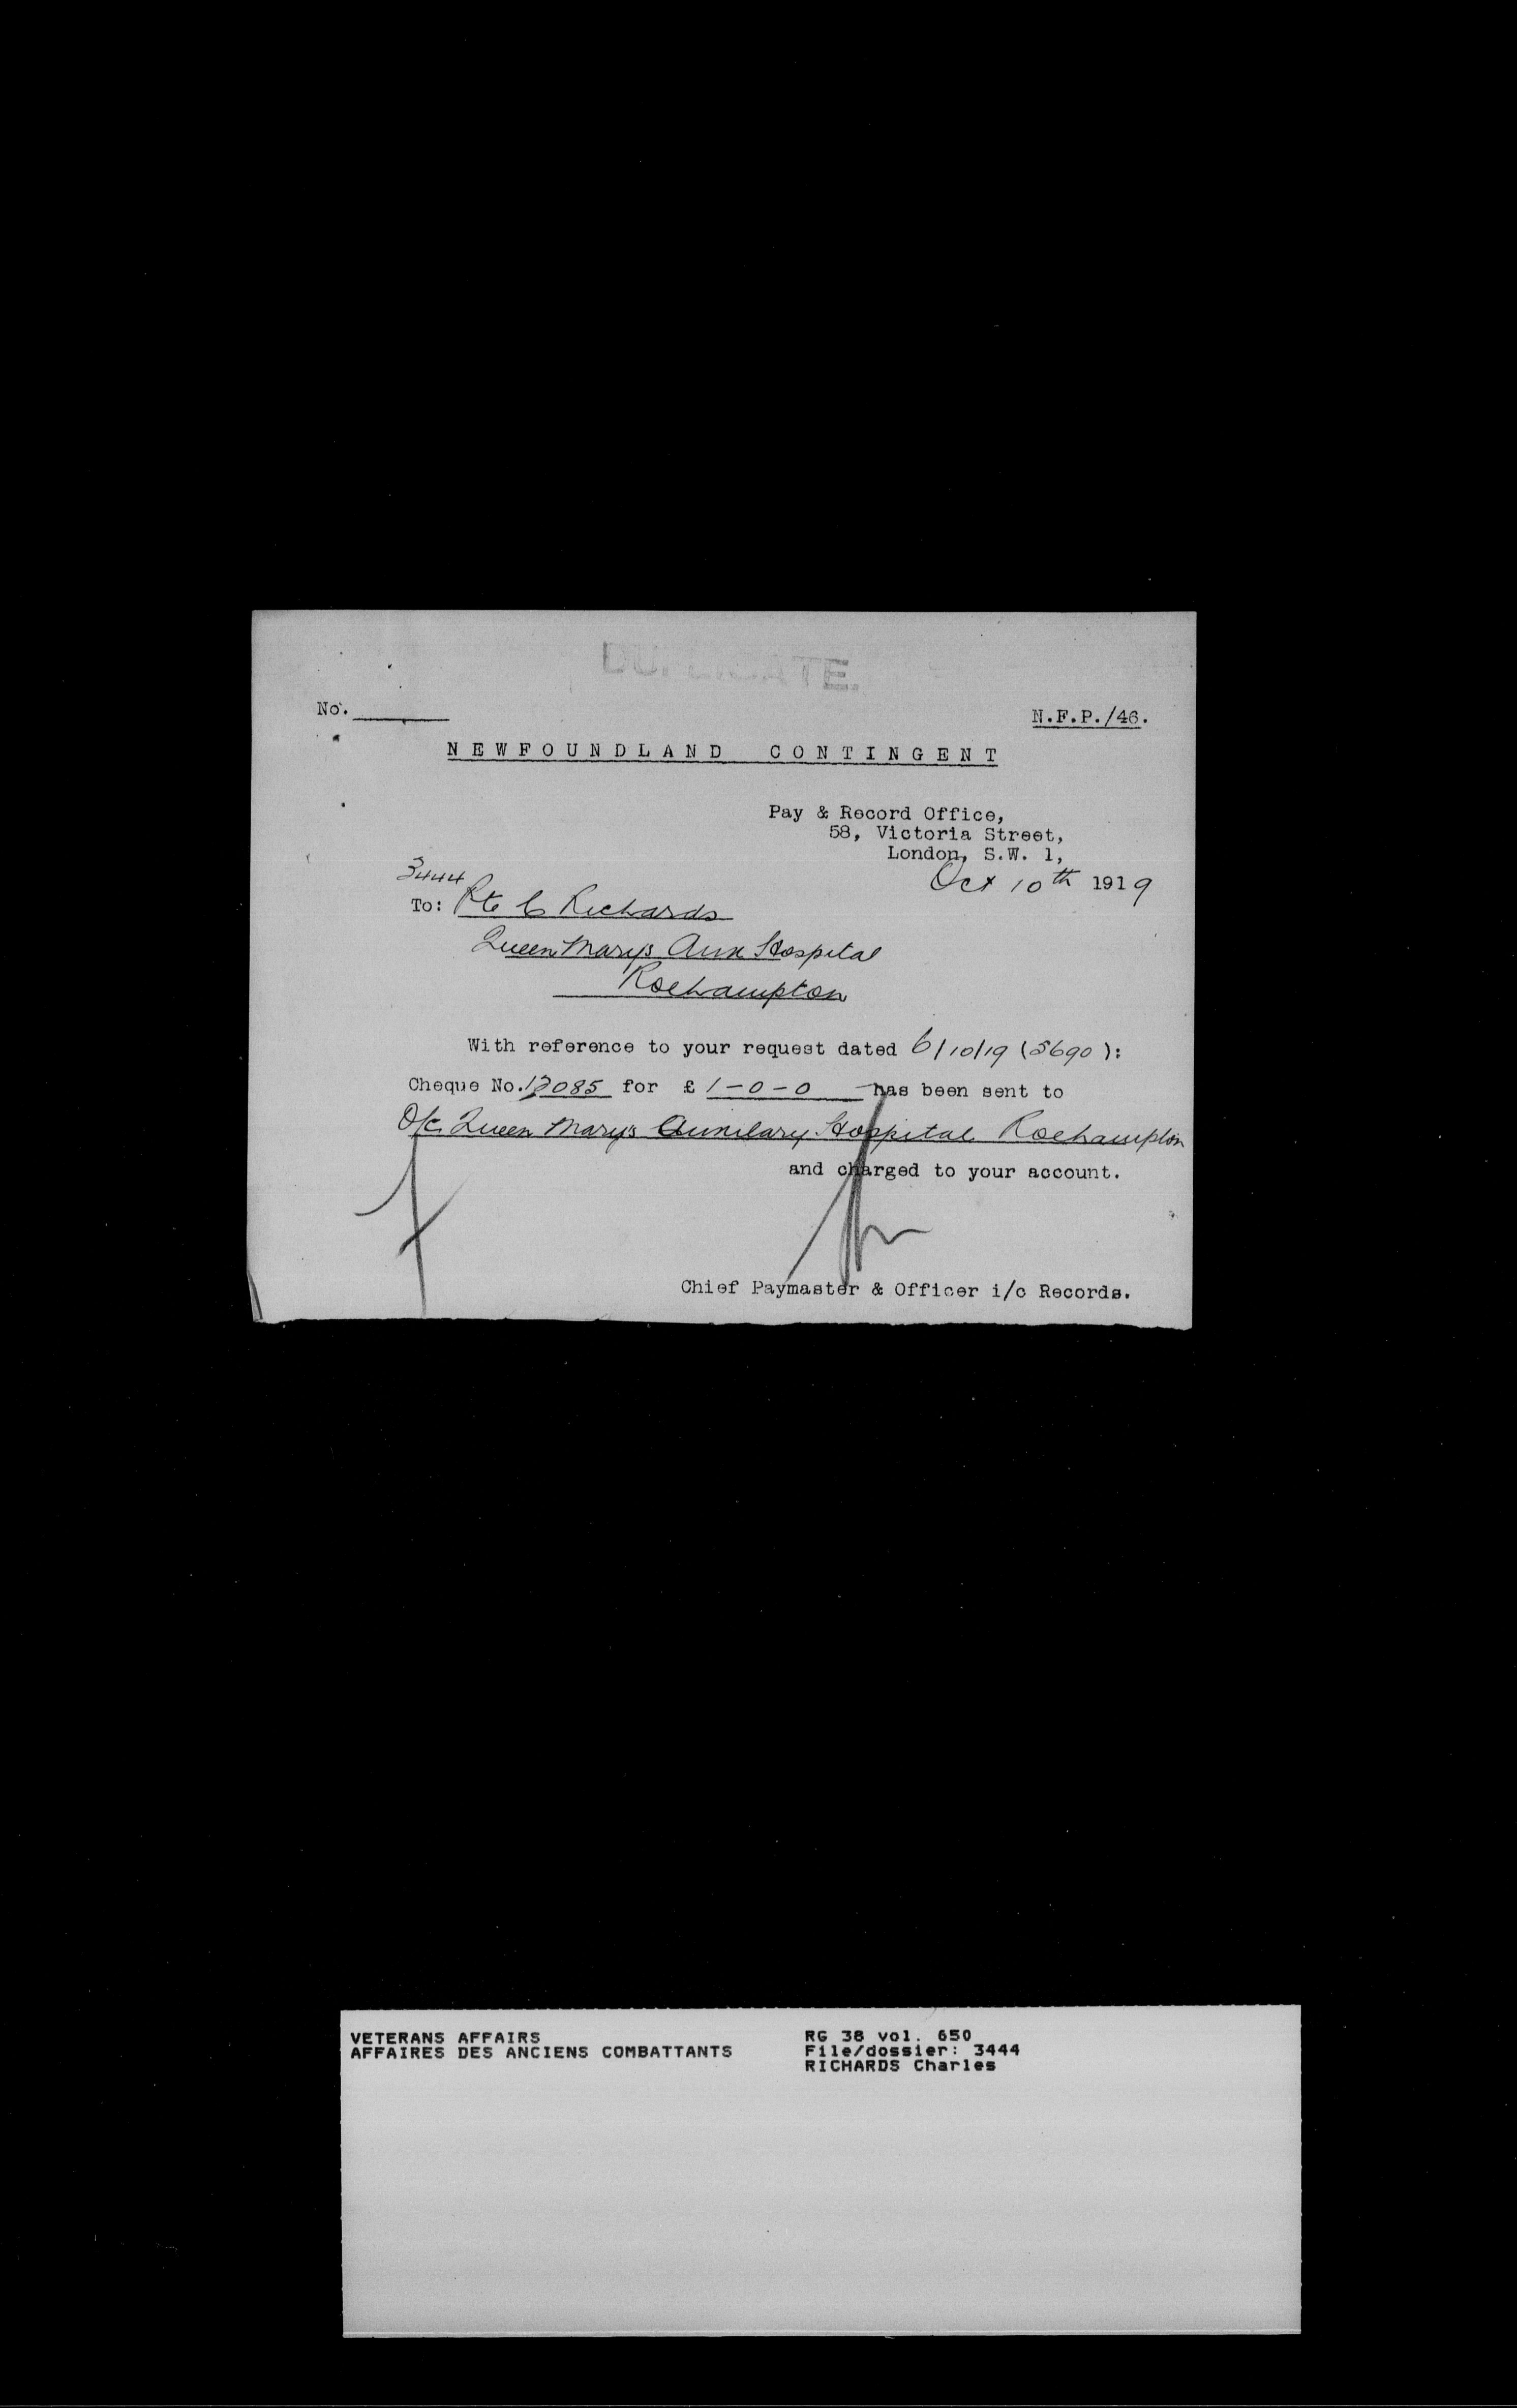 DUPLICATE.
No.
N.F.P./46.
NEWFOUNDLAND CONTINGENT
Pay & Record Office,
58, Victoria Street,
London, S.W. 1,
Oct 10th 1919
3444
To: Pte C Richards
Queen Marys Aux Hospital
Roehampton
With reference to your request dated 6/10/19 (5690):
Cheque No. 12085 for £ 1-0-0 has been sent to
O/c. Queen Marys Auxilary Hospital Roehampton
and charged to your account.
Chief Paymaster & Officer i/c Records.
VETERANS AFFAIRS
AFFAIRES DES ANCIENS COMBATTANTS
RG 38 vol. 650
File/dossier: 3444
RICHARDS Charles